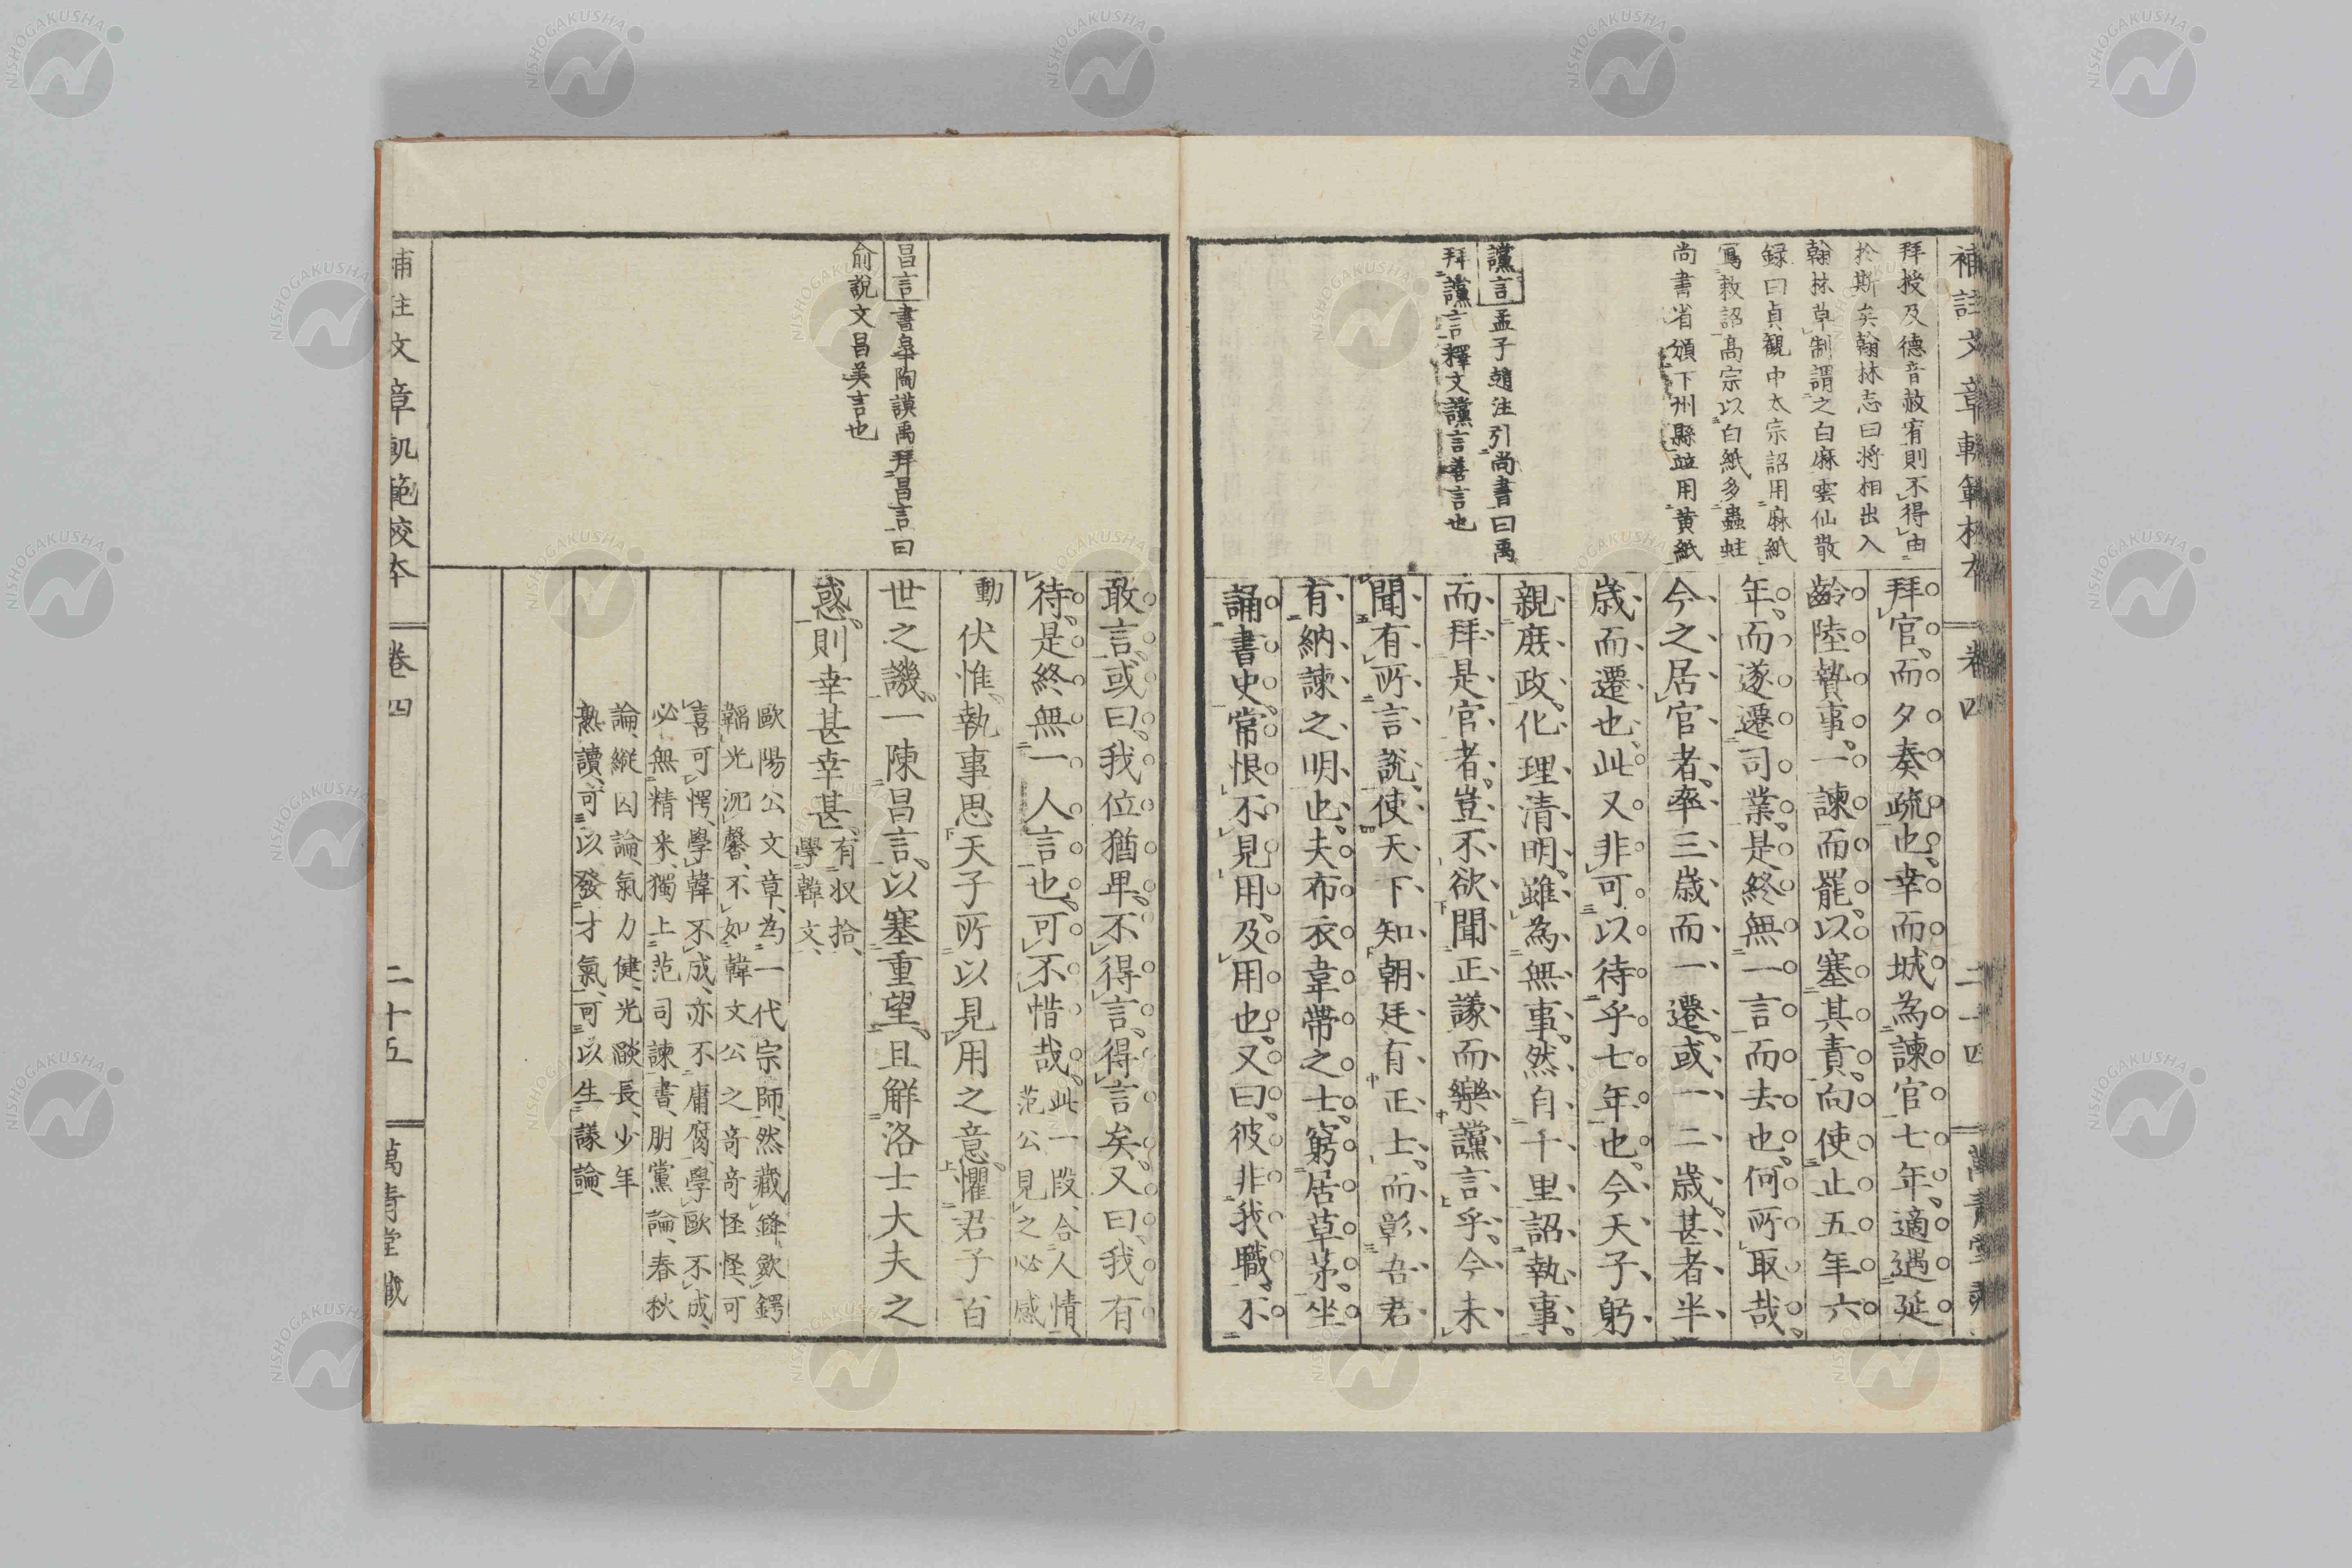 補註文章軌範校本 卷四 二十四 萬青堂藏
拜授及德音赦宥則不得由
於斯矣翰林志曰將相出入
翰林草制謂之白麻雲仙散
録曰貞觀中太宗詔用麻紙
寫敕詔高宗以白紙多蟲蛀
尚書省頒下州縣並用黄紙
讜言孟子趙注引尚書曰禹
拜讜言釋文讜言善言也
拜官而夕奏疏也幸而城為諫官七年適遇延
齡陸贄事一諫而罷以塞其責向使止五年六
年而遂遷司業是終無一言而去也何所取哉
今之居官者率三歳而一遷或一二歳甚者半
歳而遷也此又非可以待乎七年也今天子躬
親庶政化理清明雖為無事然自千里詔執事
而拜是官者豈不欲聞正議而樂讜言乎今未
聞有所言說使天下知朝廷有正上而彰吾君
有納諫之明也夫布衣韋帶之士窮居草茅坐
誦書史常恨不見用及用也又曰彼非我職不
昌言書皐陶謨禹拜昌言曰
俞說文昌美言也
敢言或曰我位猶卑不得言得言矣又曰我有
待是終無一人言也可不惜哉此一段合人情
范公見之必感
動伏惟執事思天子所以見用之意懼君子百
世之譏一陳昌言以塞重望且解洛士大夫之
惑則幸甚幸甚有収拾
學韓文
歐陽公文章為一代宗師然藏鋒歛鍔
韜光沉馨不如韓文公之奇奇怪怪可
喜可愕學韓不成亦不庸腐學歐不成
必無精采獨上范司諫書朋黨論春秋
論縱囚論氣力健光燄長少年
熟讀可以發才氣可以生議論
補註文章軌範校本 卷四 二十五 萬青堂藏
NISHOGAKUSHA